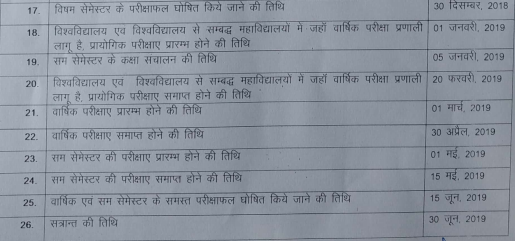 17. विषम सेमेस्टर के परीक्षाफल घोषित किये जाने की तिथि 30 दिसम्बर, 2018
18. विश्वविद्यालय एव विश्वविद्यालय से सम्बद्ध महाविद्यालयो में जहाँ वार्षिक परीक्षा प्रणाली 01 जनवरी, 2019
लागू है, प्रायोगिक परीक्षाए प्रारम्भ होने की तिथि
19. सम सेमेस्टर के कक्षा संचालन की तिथि 05 जनवरी, 2019
20. विश्वविद्यालय एव विश्वविद्यालय से सम्बद्ध महाविद्यालयो में जहाँ वार्षिक परीक्षा प्रणाली 20 फरवरी, 2019
लागू है, प्रायोगिक परीक्षाए समाप्त होने की तिथि
21. वार्षिक परीक्षाए प्रारम्भ होने की तिथि 01 मार्च, 2019
22. वार्षिक परीक्षाए समाप्त होने की तिथि 30 अप्रैल, 2019
23. सम सेमेस्टर की परीक्षाए प्रारम्भ होने की तिथि 01 मई, 2019
24. सम सेमेस्टर की परीक्षाए समाप्त होने की तिथि 15 मई, 2019
25. वार्षिक एवं सम सेमेस्टर के समस्त परीक्षाफल घोषित किये जाने की तिथि 15 जून, 2019
26. सत्रान्त की तिथि 30 जून, 2019